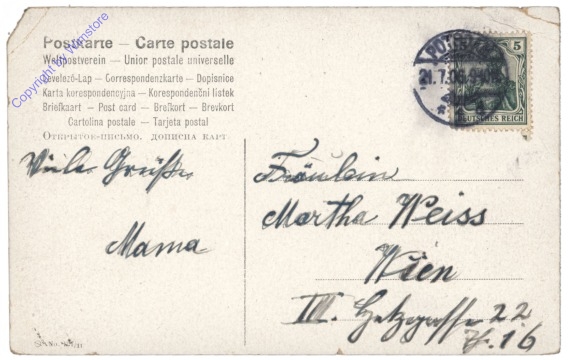 Postkarte — Carte postale
Weltpostverein — Union postale universelle
Levelező-Lap — Correspondenzkarte — Dopisnice
Karta korespondencyjna — Korespondenční lístek
Briefkaart — Post card — Brefkort — Brevkort
Cartolina postale — Tarjeta postal
Открытое-письмо. дописна карт
Copyright by Wornstore
Viele Grüße
Mama
POTSDAM
21.7.06.9-10
5
DEUTSCHES REICH
Fräulein
Martha Weiss
Wien
III. Hetzgasse 22
16